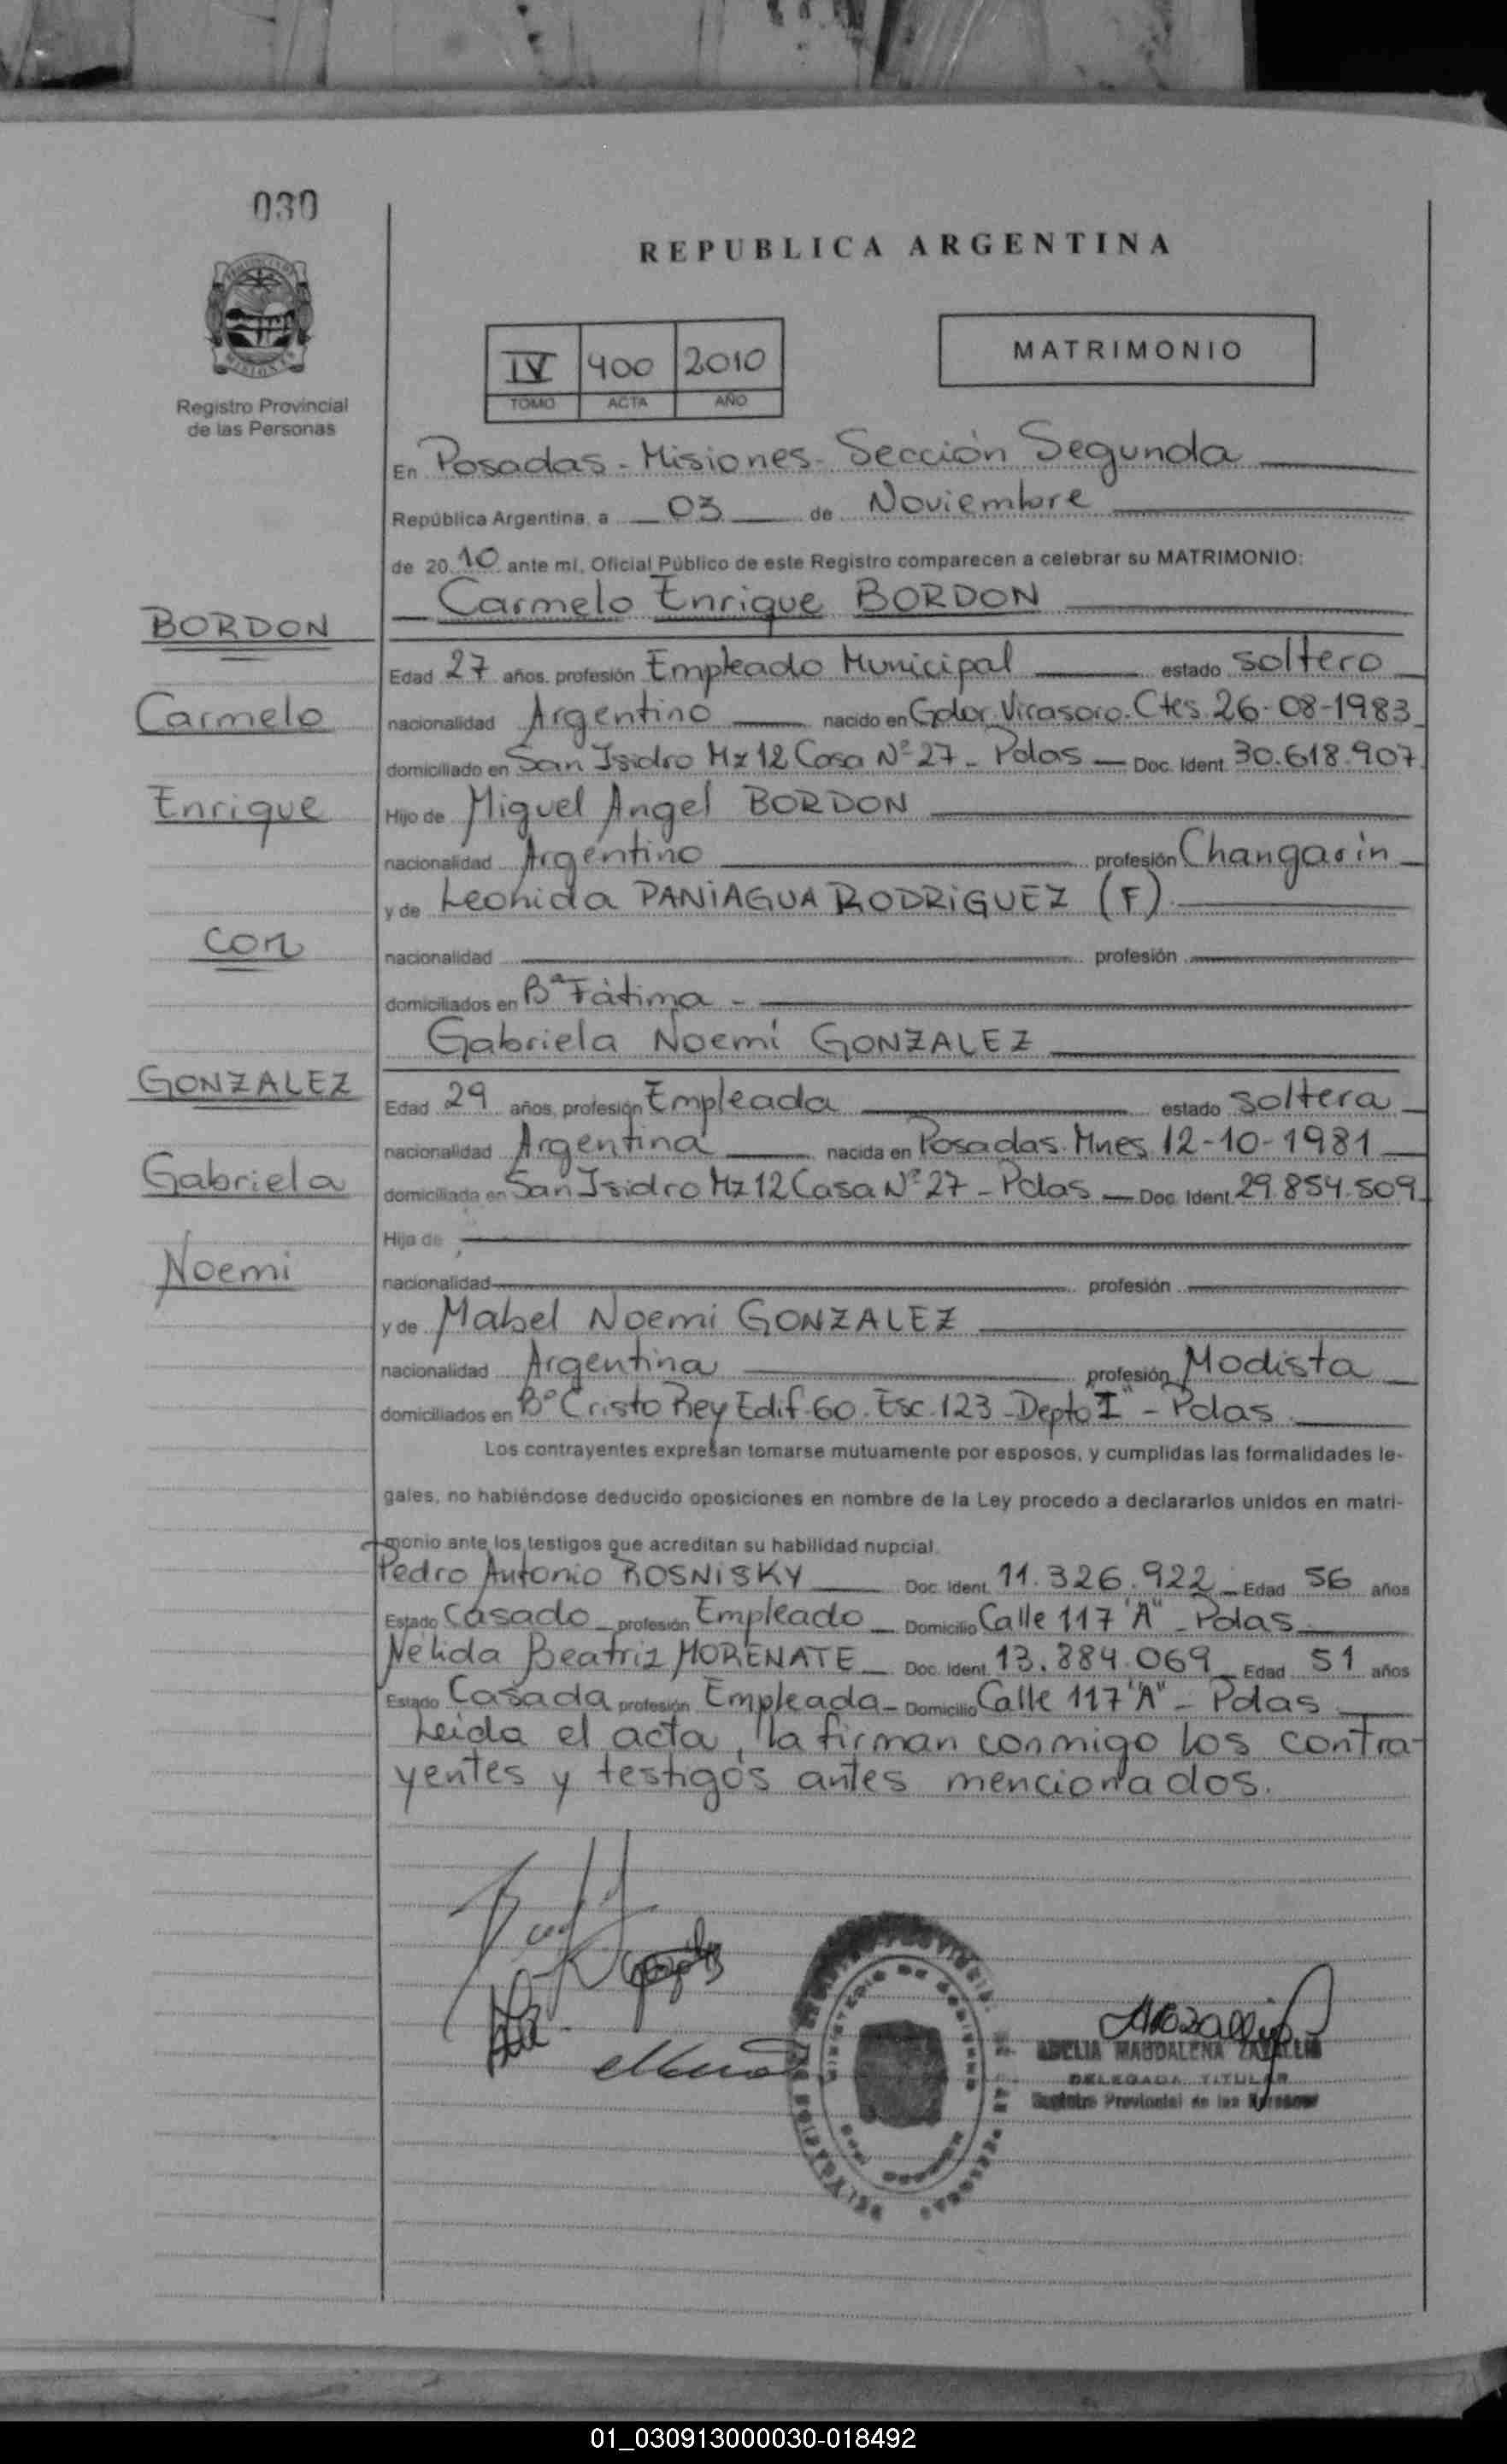 030
REPUBLICA ARGENTINA
IV 400 2010
TOMO ACTA AÑO
MATRIMONIO
Registro Provincial
de las Personas
En Posadas - Misiones - Sección Segunda
República Argentina, a 03 de Noviembre
de 2010 ante mi, Oficial Público de este Registro comparecen a celebrar su MATRIMONIO:
Carmelo Enrique BORDON
BORDON
Edad 27 años, profesión Empleado Municipal estado soltero
Carmelo
nacionalidad Argentino nacido en Gdor. Virasoro. Ctes. 26-08-1983
domiciliado en San Isidro Mz 12 Casa Nº 27 - Pdas Doc. Ident. 30.618.907
Enrique
Hijo de Miguel Angel BORDON
nacionalidad Argentino profesión Changarin
y de Leonida PANIAGUA RODRIGUEZ (F)
con
nacionalidad profesión
domiciliados en Bº Fátima -
Gabriela Noemí GONZALEZ
GONZALEZ
Edad 29 años, profesión Empleada estado soltera
nacionalidad Argentina nacida en Posadas. Mnes. 12-10-1981
Gabriela
domiciliada en San Isidro Mz 12 Casa Nº 27 - Pdas Doc. Ident. 29.854.509
Hija de
Noemi
nacionalidad profesión
y de Mabel Noemi GONZALEZ
nacionalidad Argentina profesión Modista
domiciliados en Bº Cristo Rey Edif. 60. Esc. 123 - Depto "I" - Pdas
Los contrayentes expresan tomarse mutuamente por esposos, y cumplidas las formalidades le-
gales, no habiéndose deducido oposiciones en nombre de la Ley procedo a declararlos unidos en matri-
monio ante los testigos que acreditan su habilidad nupcial.
Pedro Antonio ROSNISKY Doc. Ident. 11.326.922 Edad 56 años
Estado Casado profesión Empleado Domicilio Calle 117 "A" - Pdas
Nélida Beatriz MORENATE Doc. Ident. 13.884.069 Edad 51 años
Estado Casada profesión Empleada - Domicilio Calle 117 "A" - Pdas
Leida el acta, la firman conmigo los contra-
yentes y testigos antes mencionados.
MAGDALENA
DELEGADA TITULAR
Registro Provincial de las Personas
01_030913000030-018492